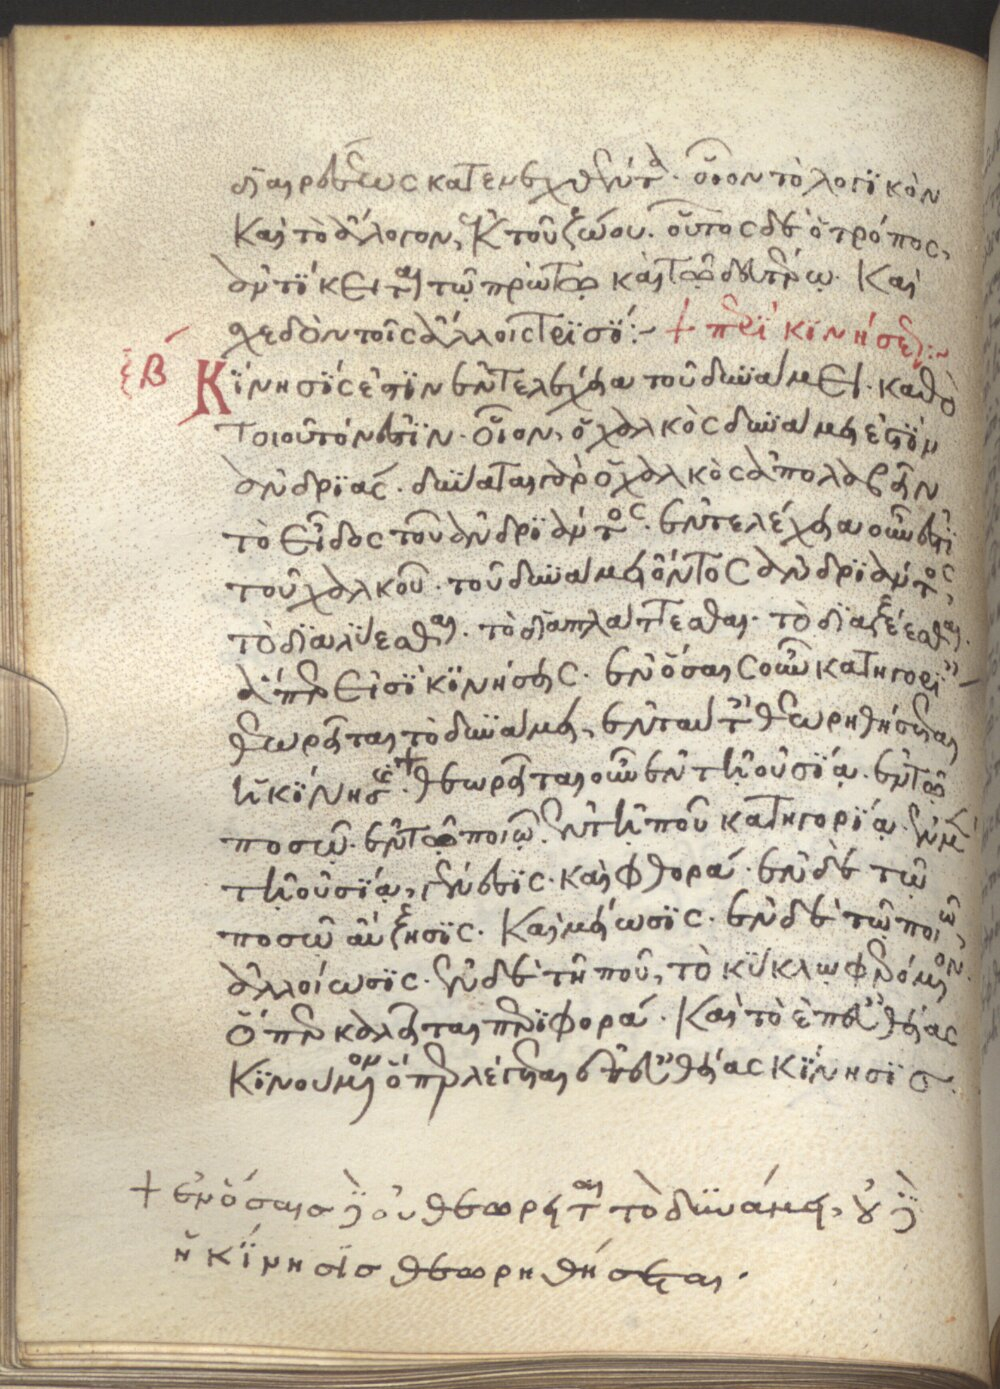 διαιρέσεως κατενεχθέντα. οἷον τὸ λογικὸν
Καὶ τὸ ἄλογον, ἐκ τοῦ ζώου. οὗτος δὲ ὁ τρόπος,
ἀντίκειται τῷ πρώτῳ καὶ τῷ δευτέρῳ. Καὶ
σχεδὸν τοῖς ἄλλοις τρισί:~ + περὶ κινήσεως:~
ξβ Κίνησίς ἐστιν ἐντελέχεια τοῦ δυνάμει. καθὸ
τοιοῦτόν ἐστιν. οἷον, ὁ χαλκὸς δυνάμει ἐστὶν
ἀνδριάς. δύναται γὰρ ὁ χαλκὸς ἀπολαβεῖν
τὸ εἶδος τοῦ ἀνδριάντος. ἐντελέχεια οὖν ἐστι
τοῦ χαλκοῦ. τοῦ δυνάμει ὄντος ἀνδριάντος,
τὸ διαλύεσθαι. τὸ διαπλάττεσθαι. τὸ διαξέεσθαι.
ἅπερ εἰσὶ κινήσεις. ἐν ὅσαις οὖν κατηγορίαις
θεωρεῖται τὸ δυνάμει, ἐν ταύταις θεωρηθήσεται
ἡ κίνησις. + θεωρεῖται οὖν ἐν τῇ οὐσίᾳ. ἐν τῷ
ποσῷ. ἐν τῷ ποιῷ. ἐν τῇ ποῦ κατηγορίᾳ. ἐν μὲν
τῇ οὐσίᾳ, γένεσις. καὶ φθορά. ἐν δὲ τῷ
ποσῷ αὔξησις. Καὶ μείωσις. ἐν δὲ τῷ ποιῷ,
ἀλλοίωσις. ἐν δὲ τῇ ποῦ, τὸ κύκλῳ φερόμενον.
ὅπερ καλεῖται περιφορά. Καὶ τὸ ἐπ' εὐθείας
Κινούμενον ὅπερ λέγεται ἐπ' εὐθείας κίνησις.
+ ἐν ὅσαις οὖν θεωρεῖται τὸ δυνάμει,
ἡ κίνησις θεωρηθήσεται.